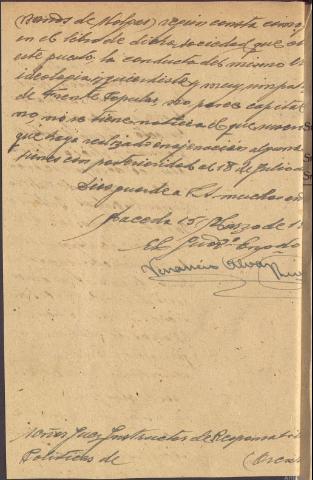 Baños de Molgas) según consta como
en el libro de dicha sociedad que ob
este puesto, la conducta del mismo es
ideologia izquierdista y muy simpati
de Frente Popular no posee capital
no, no se tiene noticia de que
que haya realizado enajenación alguna
con posterioridad al 18 de Julio d
Dios guarde a V.S. muchos añ
Maceda 15 Marzo de 19
El Guard.ª Encdo
Venancio Alvar
Señor Juez Instructor de Responsabili
Politicas de (Orens